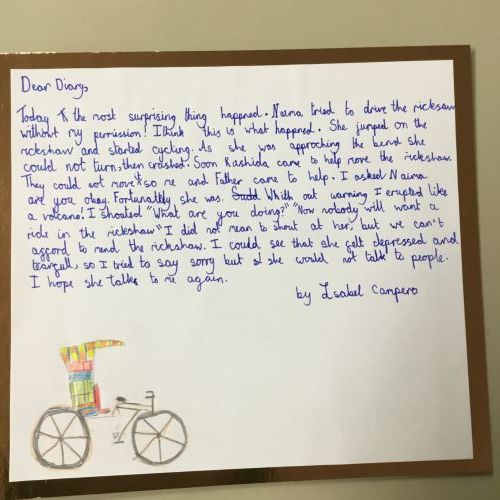 Dear Diary,
Today the most surprising thing happned. Naima tried to drive the ricksaw
without my permission! I think this is what happned. She jumped on the
rickshaw and started cycling. As she was approching the bend she
could not turn, then crashed. Soon Rashida came to help move the rickshaw.
They could not move it so me and Father came to help. I asked Naima
are you okay. Fortunately, she was. Sudd Whith out warning I erupted like
a volcano! I shouted "What are you doing?" "Now nobody will want a
ride in the rickshaw" I did not mean to shout at her, but we can't
afford to mend the rickshaw. I could see that she felt depressed and
tearfull, so I tried to say sorry but she would not talk to people.
I hope she talks to me again.
by Isabel Campero